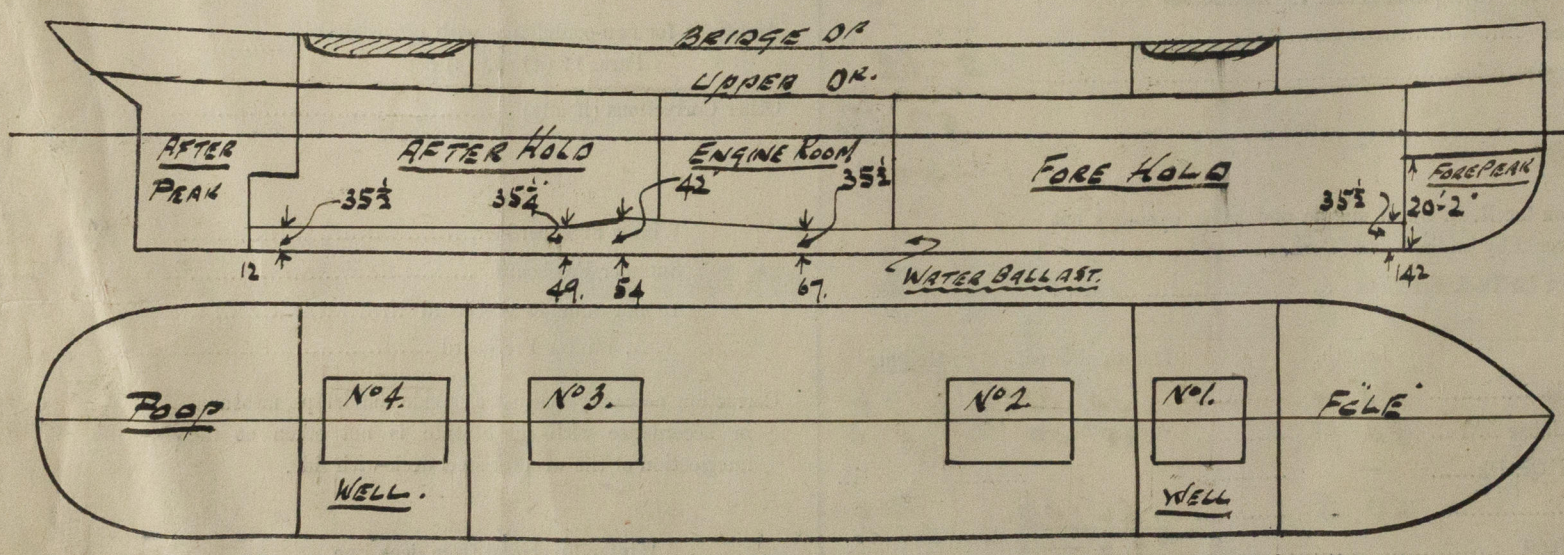 BRIDGE DK
UPPER DK.
AFTER
PEAK
AFTER HOLD
ENGINE ROOM
FORE HOLD
FOREPEAK
35½
35¼"
42"
35½
35½
20'-2"
12
49.
54
67.
142
WATER BALLAST.
POOP
No 4.
No 3.
No 2.
No 1.
F'C'LE
WELL.
WELL